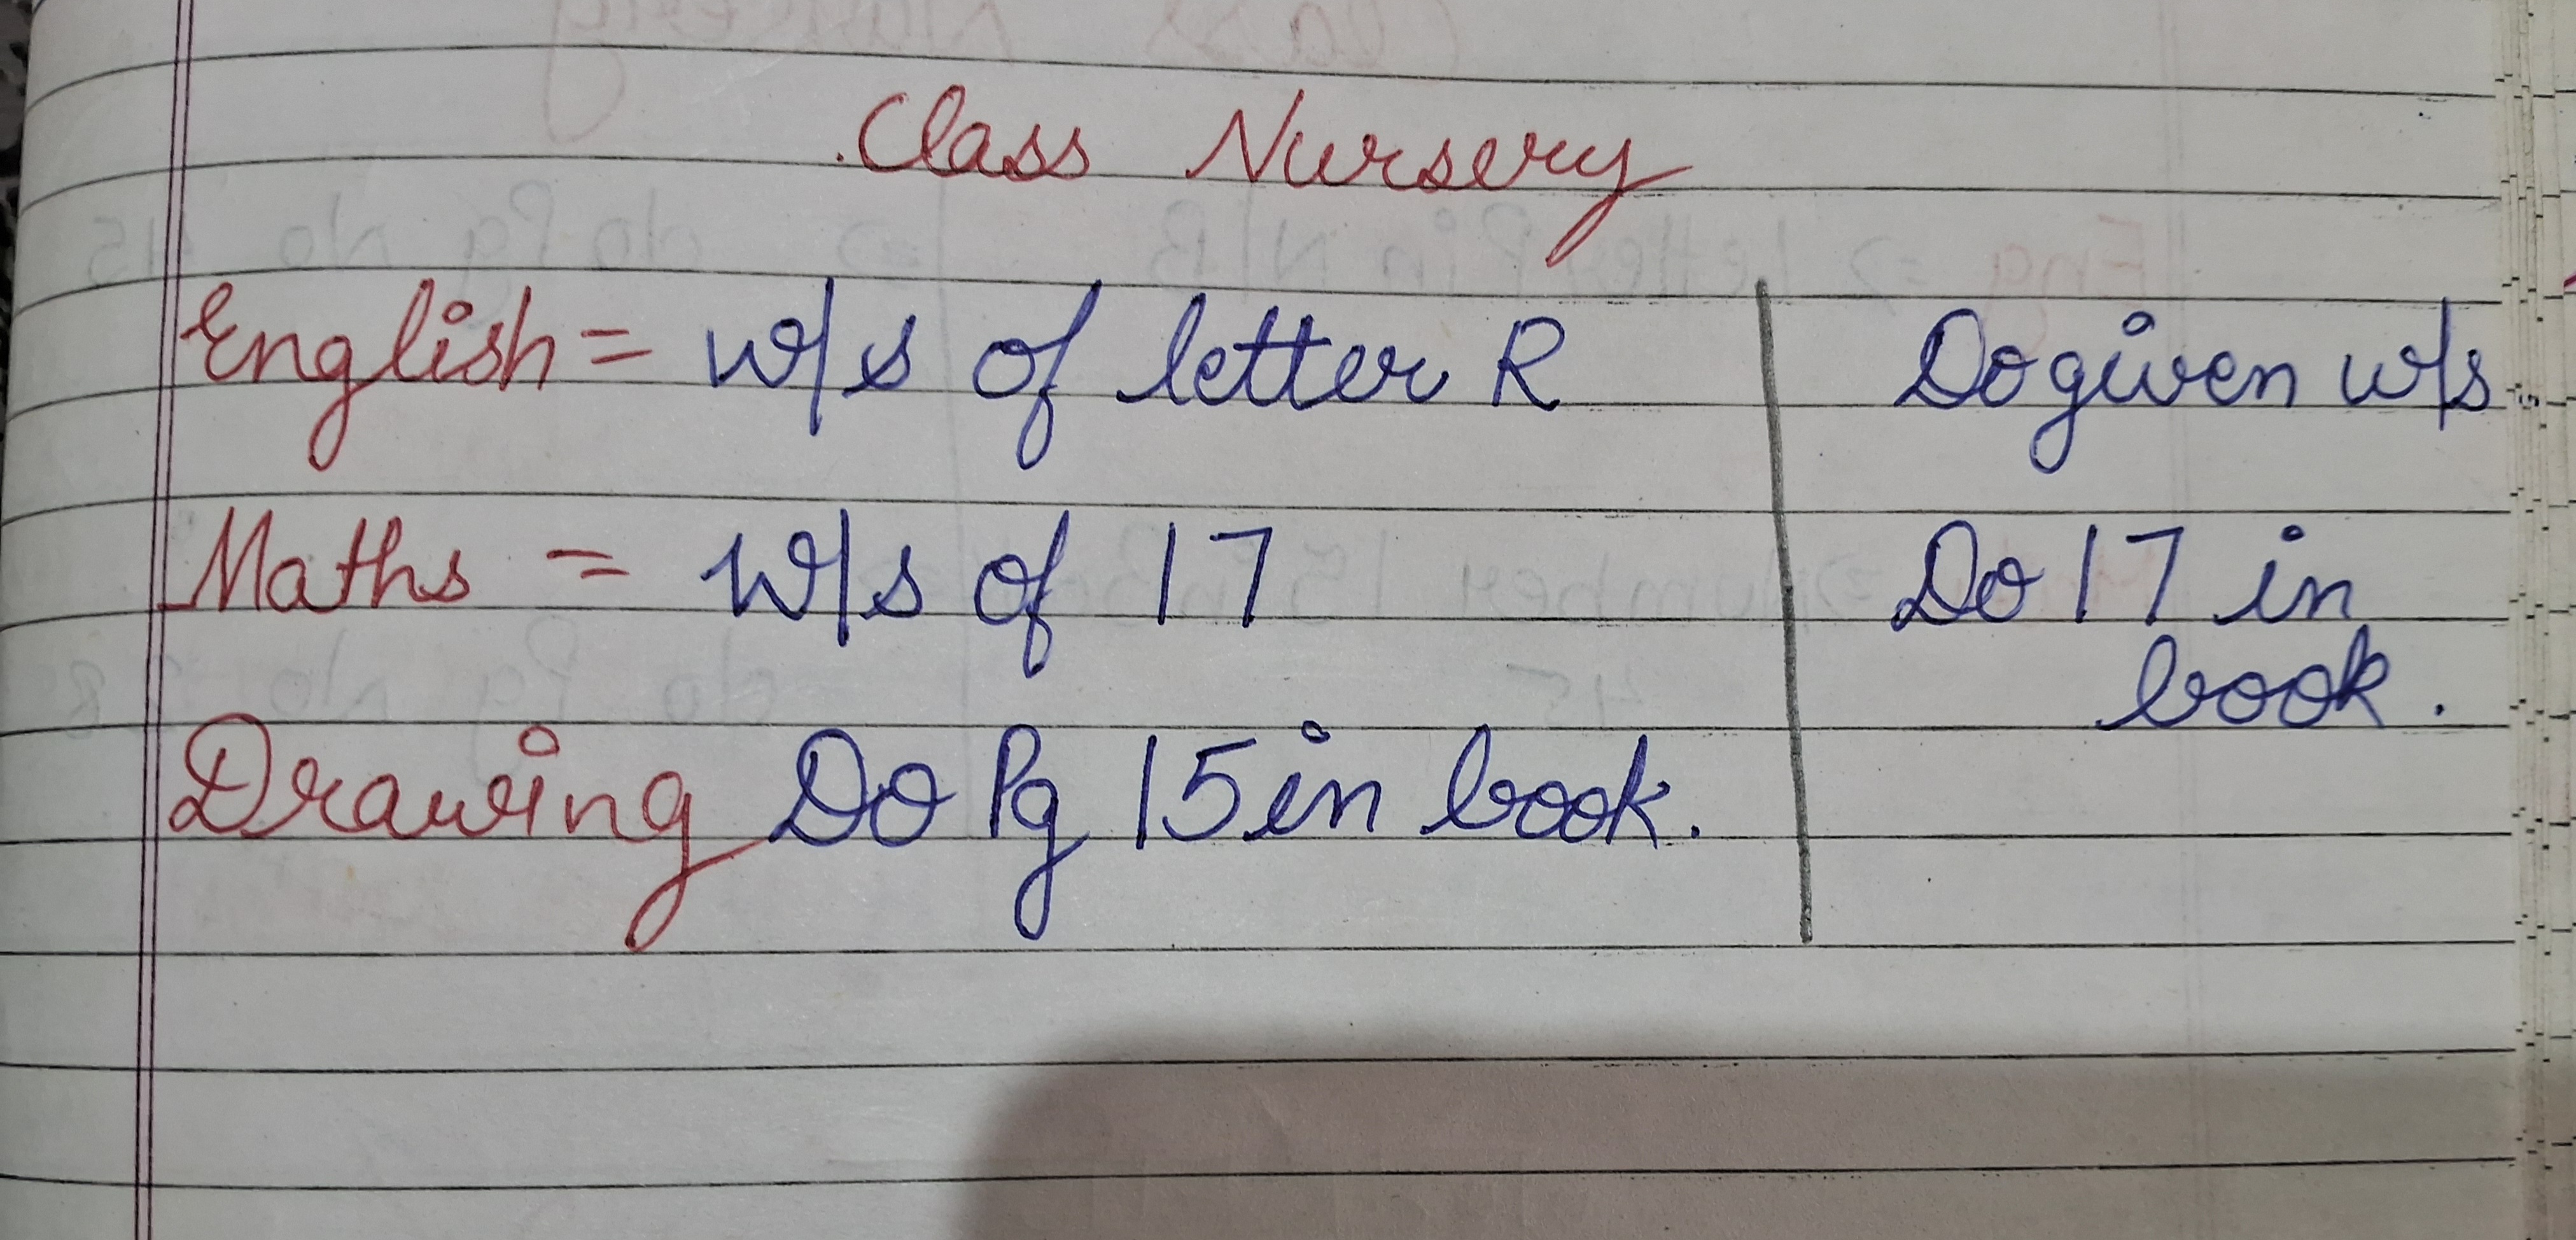 Class Nursery
English = w/s of letter R | Do given w/s.
Maths = w/s of 17 | Do 17 in
book.
Drawing Do Pg 15 in book.